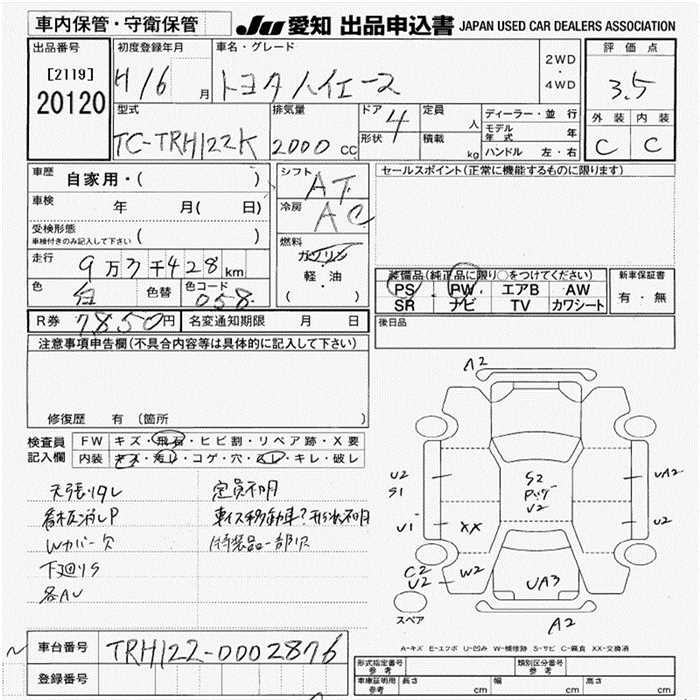 車内保管・守衛保管
JU 愛知 出品申込書 JAPAN USED CAR DEALERS ASSOCIATION
出品番号
[2119]
20120
初度登録年月
H16 月
車名・グレード
トヨタハイエース
2WD
・
4WD
評価点
3.5
外装 内装
C C
型式
TC-TRH122K
排気量
2000 cc
ドア 4
形状
定員 人
積載 kg
ディーラー・並行
モデル年式 年
ハンドル 左・右
車歴 自家用・( )
車検 年 月( 日)
受検形態
車検付きのみ記入して下さい ( )
走行 9万3千428km
色 白 色替 色コード 058
シフト AT
冷房 AC
燃料
ガソリン
・
軽・油
( )
セールスポイント(正常に機能するものに限ります)
装備品(純正品に限り〇をつけてください)
PS PW エアB AW
SR ナビ TV カワシート
新車保証書
有・無
R券 7850円 名変通知期限 月 日
後日品
注意事項申告欄(不具合内容等は具体的に記入して下さい)
修復歴 有 (箇所 )
検査員記入欄
FW キズ・飛石・ヒビ割・リペア跡・X要
内装 キズ・汚レ・コゲ・穴・スレ・キレ・破レ
天張リタレ
看板消しP
Wカバー欠
下廻りS
各AU
定員不明
車イス移動車?形状不明
特装品一部欠
A2
U2
S1
U1
XX
C2
U2
W2
S2
U2
UA3
UA2
U2
A2
スペア
A-キズ E-エクボ U-凹み W-補修跡 S-サビ C-腐食 XX-交換済
車台番号 TRH122-0002876
登録番号
形式指定番号 参考
類別区分番号 参考
車庫証明用 参考 長さ cm 幅 cm 高さ cm